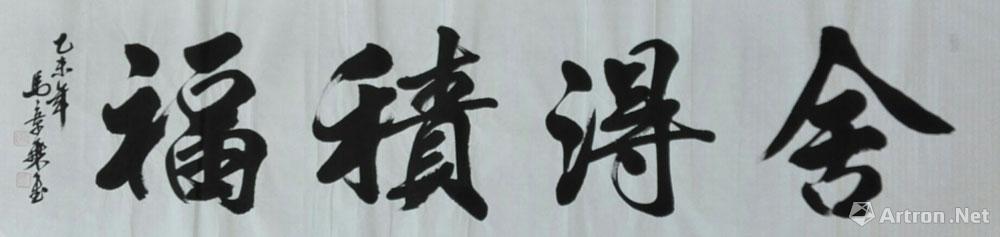 舍得積福
乙未年
馬章乘書
Artron.Net